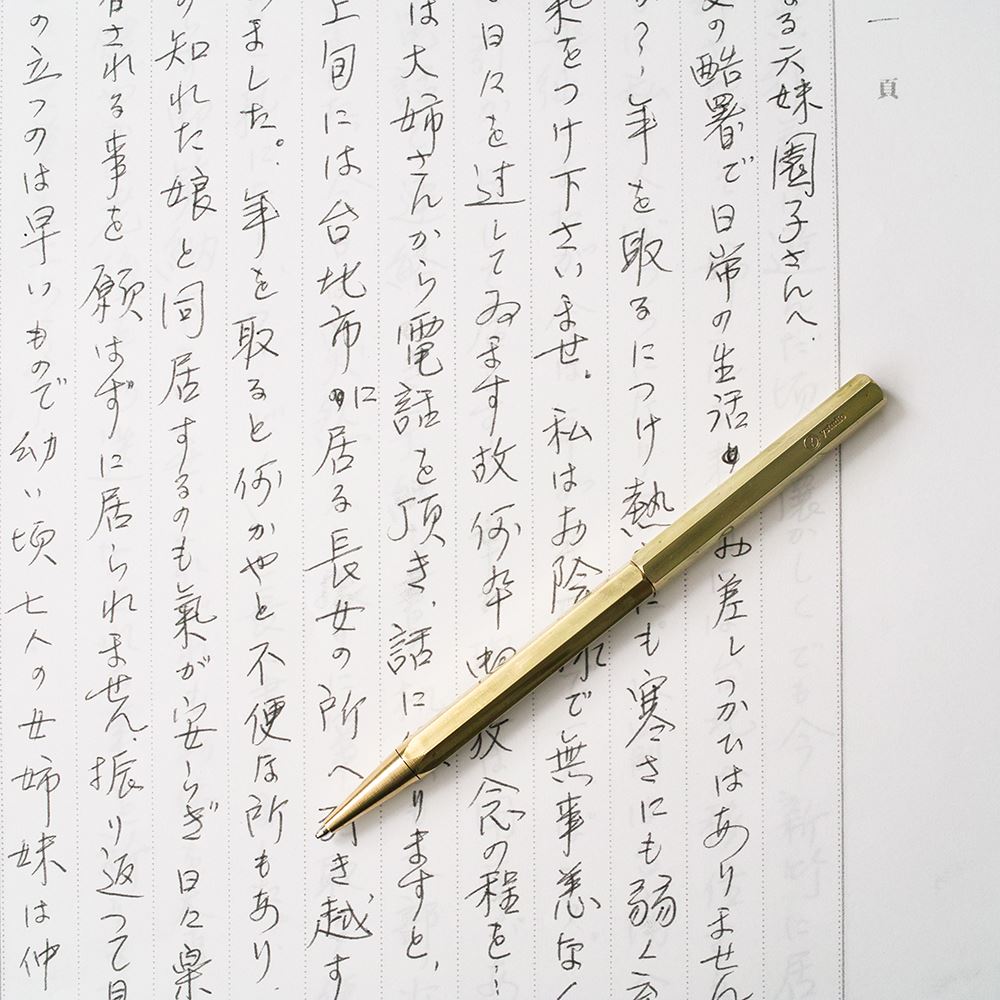 一頁
る六妹園子さんへ.
の酷署で日常の生活 お差しつかひはありません
か?年を取るにつけ熱 にも寒さにも弱く
気をつけ下さいませ。私はお陰 で無事恙なく
日々を过してゐます故何卒 放念の程を…
は大姉さんから電話を頂き、話に りますと、
上旬には台北市に居る長女の所へ引き越す
ました。年を取ると何かやと不便な所もあり
の知れた娘と同居するのも氣が安らぎ日々楽
される事を願はずに居られません、振り返つて見
の立つのは早いもので幼い頃七人の女姉妹は仲